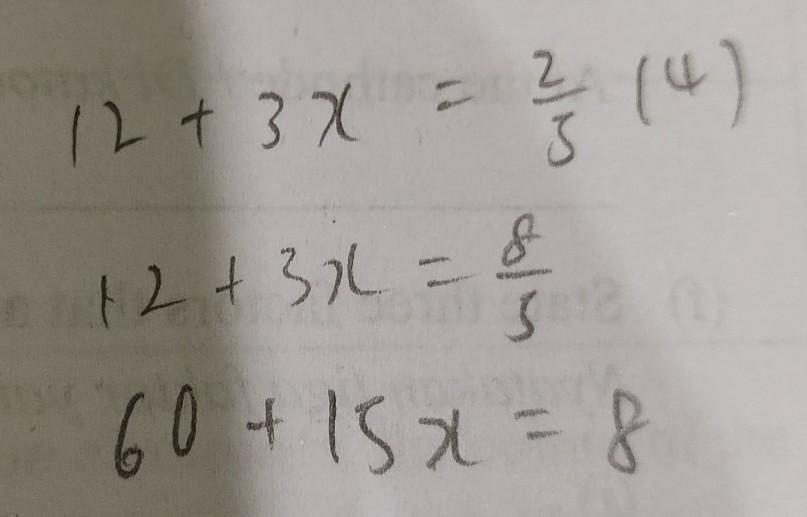 12 + 3x = 2/5 (4)
12 + 3x = 8/5
60 + 15x = 8